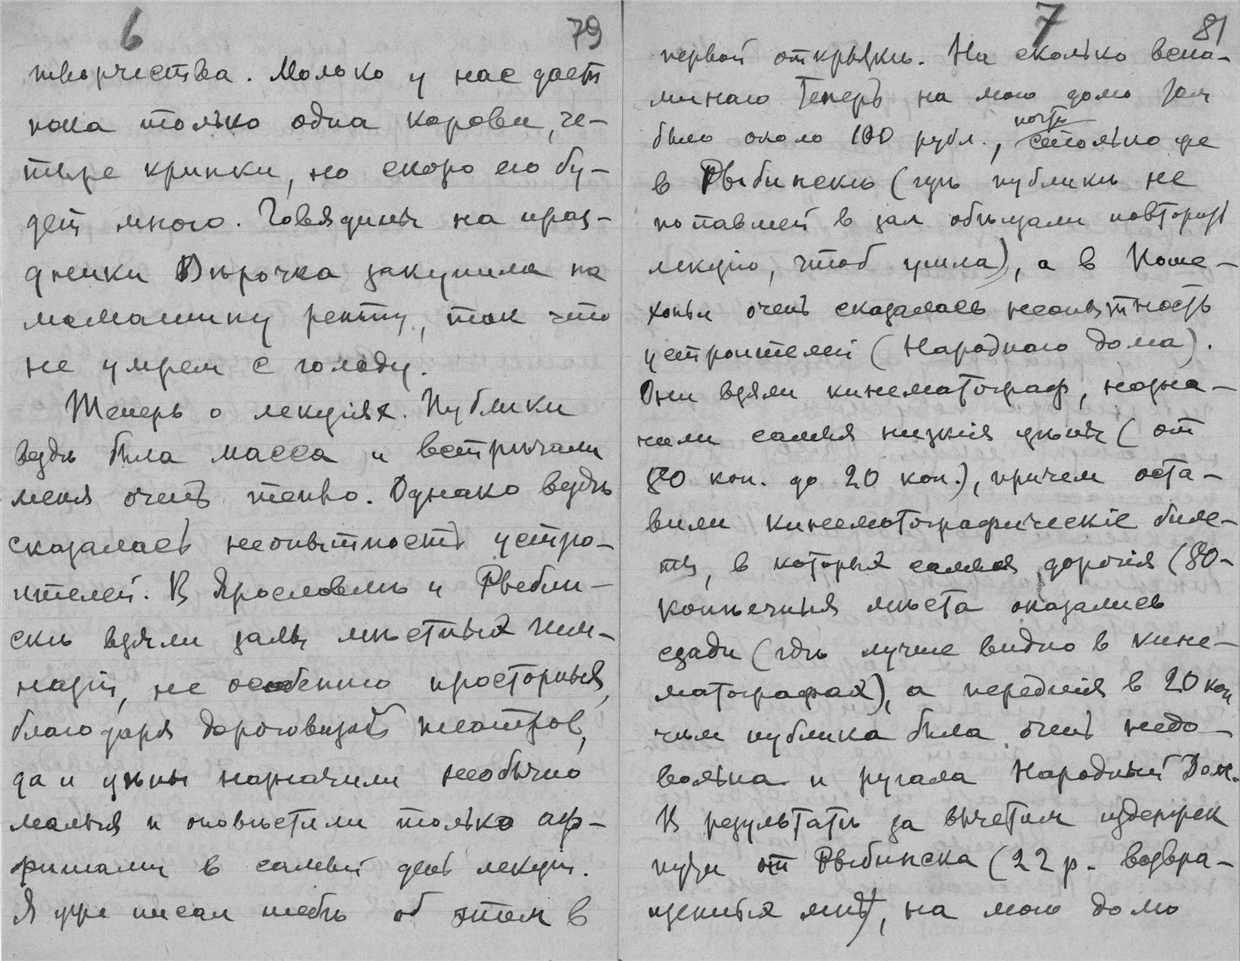 6 79
творчества. Молоко у нас даетъ
пока только одна корова, че-
тыре кринки, но скоро его бу-
детъ много. Говядины на праз-
дники Вѣрочка закупила на
мамашину ренту, так что
не умрем с голоду.
Теперь о лекціях. Публики
вездѣ была масса и встрѣчали
меня очень тепло. Однако вездѣ
сказалась неопытность устро-
ителей. В Ярославлѣ и Рыбин-
скѣ взяли залы мѣстных гим-
назій, не особенно просторныя,
благодаря дороговизнѣ театров,
да и цѣны назначили необычно
малыя и оповѣстили только аф-
фишами в самый день лекціи.
Я уже писал тебѣ об этом в
7 81
первой открыткѣ. На сколько вспо-
минаю теперь на мою долю там
было около 100 рубл., почти столько же
в Рыбинскѣ (гдѣ публикѣ не
попавшей в зал обѣщали повторить
лекцію, чтоб ушла), а в Поше-
хоньи очень сказалась неопытность
устроителей (Народнаго дома).
Они взяли кинематограф, назна-
чили самыя низкія цѣны (от
80 коп. до 20 коп.), причем оста-
вили кинематографическіе биле-
ты, в которых самыя дорогія (80-
копѣечныя мѣста оказались
сзади (гдѣ лучше видно в кине-
матографах), а переднія в 20 коп
чѣм публика была очень недо-
вольна и ругала Народный Дом.
В результатѣ за вычетом издержек
пути от Рыбинска (22 р. возвра-
щенных мнѣ), на мою долю